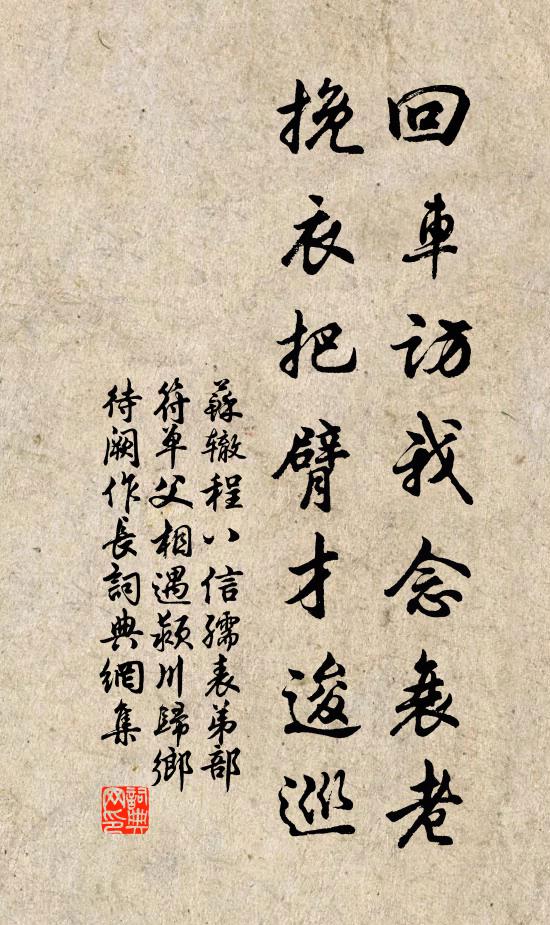 回車訪我念衰老
挽衣把臂才逡巡
蘇辙程八信孺表弟部
符单父相遇颍川歸鄉
待阙作長詞典網集
詞典
网印